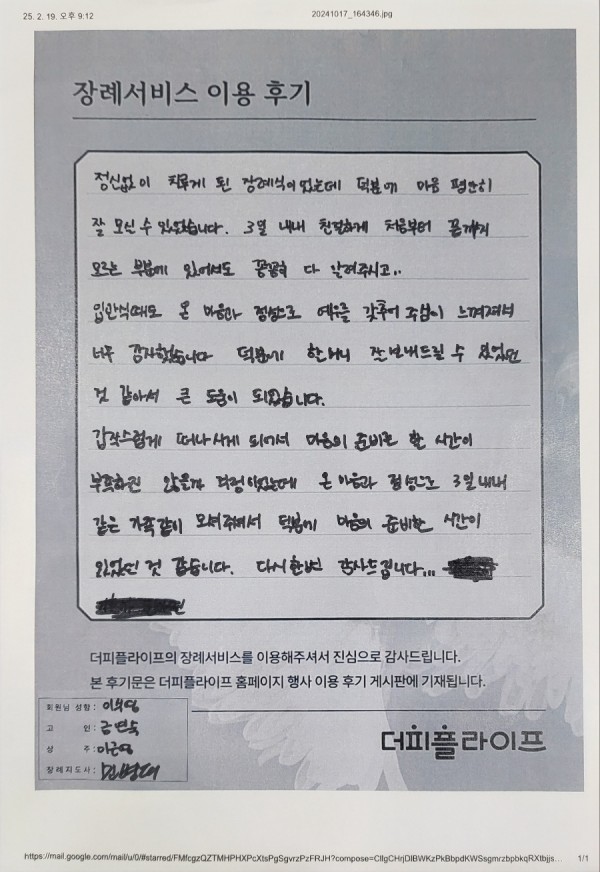 25. 2. 19. 오후 9:12
20241017_164346.jpg
장례서비스 이용 후기
정신없이 치루게 된 장례식이었는데 덕분에 마음 편안히
잘 모신 수 있었습니다. 3일 내내 친절하게 처음부터 끝까지
모르는 부분에 있어서도 꼼꼼히 다 알려주시고..
입관식때도 온 마음과 정성으로 예우를 갖추어 주심이 느껴져서
너무 감사했습니다 덕분에 할머니 잘 보내드릴 수 있었던
것 같아서 큰 도움이 되었습니다.
갑작스럽게 떠나시게 되어서 마음의 준비를 할 시간이
부족하진 않을까 걱정이었는데 온 마음과 정성으로 3일내내
같은 가족같이 모셔주셔서 덕분에 마음의 준비할 시간이
있었던 것 같습니다. 다시한번 감사드립니다...
더피플라이프의 장례서비스를 이용해주셔서 진심으로 감사드립니다.
본 후기문은 더피플라이프 홈페이지 행사 이용 후기 게시판에 기재됩니다.
회원님 성함 :
고 인 : 금연숙
상 주 :
장례지도사 : 민병대
더피플라이프
1/1